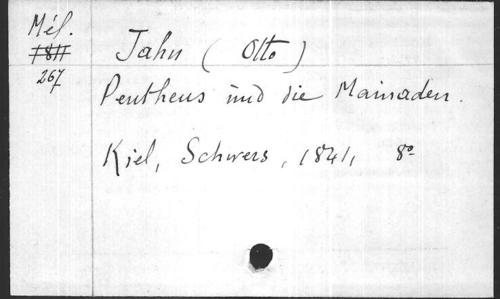 Mél.
1811
267
Jahn (Otto)
Pentheus und die Mainaden.
Kiel, Schwers, 1841, 8°